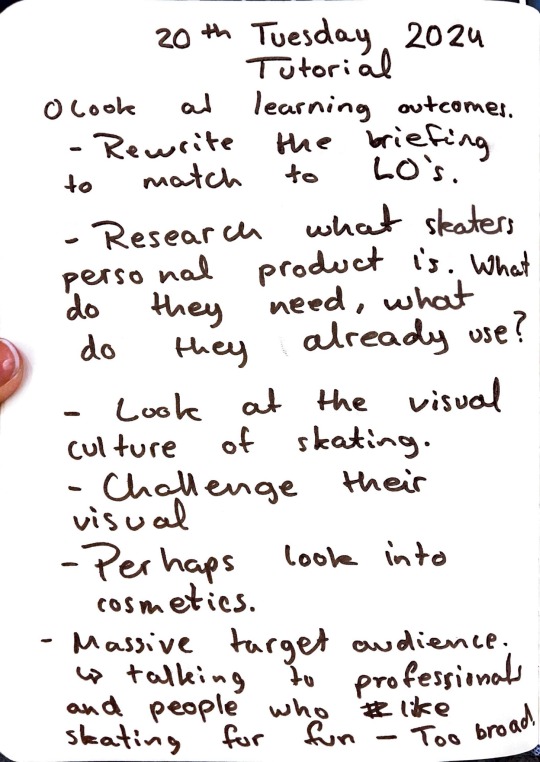 20th Tuesday 2024
Tutorial
O Look at learning outcomes.
- Rewrite the briefing
to match to LO's.
- Research what skaters
personal product is. What
do they need, what
do they already use?
- Look at the visual
culture of skating.
- Challenge their
visual
- Perhaps look into
cosmetics.
- Massive target audience.
↳ talking to professionals
and people who like
skating for fun - Too broad!